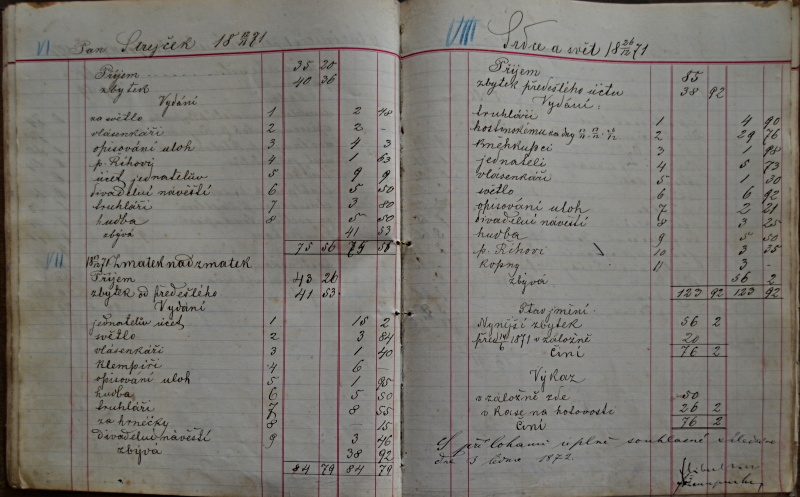 VI Pan Strejček 18 71
Příjem 35 20
zbytek 40 36
Vydání
za světlo 1 2 48
vlásenkáři 2 2 -
opisování uloh 3 4 3
p. Říhovi 4 1 63
účet jednatelův 5 9 9
divadelní návěstí 6 5 50
truhláři 7 3 80
hudba 8 5 50
zbývá 41 53
75 56 75 56
VII 71 Zmatek nad zmatek
Příjem 43 26
zbytek od předešlého 41 53
Vydání
jednatelův účet 1 15 2
světlo 2 3 84
vlásenkáři 3 1 40
klempíři 4 6 -
opisování uloh 5 1 95
hudba 6 5 50
truhláři 7 8 55
za hrnečky 8 - 15
divadelní návěstí 9 3 46
zbývá 38 92
84 79 84 79
VIII Srdce a svět 18 26/12 71
Příjem 85
zbytek předešlého účtu 38 92
Vydání:
truhláři 1 4 90
hostinskému za dny 2 29 76
kněhkupci 3 1 98
jednateli 4 5 73
vlásenkáři 5 1 30
světlo 6 6 92
opisování uloh 7 2 21
divadelní návěstí 8 3 25
hudba 9 5 50
p. Říhovi 10 3 35
11 3 -
zbývá 56 2
123 92 123 92
Stav jmění
Nynější zbytek 56 2
před 1871 v záložně 20
Činí 76 2
Výkaz
v záložně zde 50
v kase na hotovosti 26 2
Činí 76 2
S přílohami úplně souhlasné
dne 3 ledna 1872.